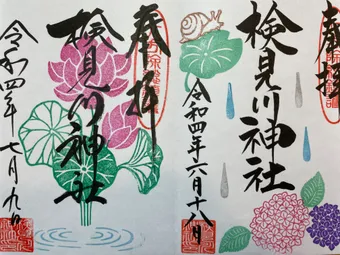 奉拝
検見川神社
令和四年六月十八日
奉拝
検見川神社
令和四年七月九日